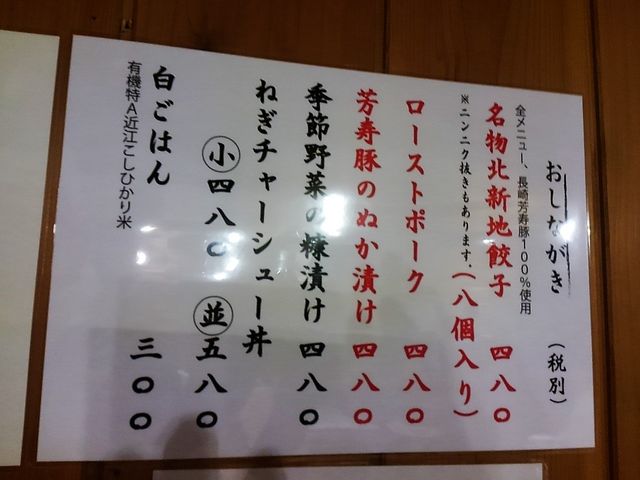 おしながき (税別)
全メニュー、長崎芳寿豚100%使用
名物北新地餃子 四八〇
※ニンニク抜きもあります。(八個入り)
ローストポーク 四八〇
芳寿豚のぬか漬け 四八〇
季節野菜の糠漬け 四八〇
ねぎチャーシュー丼
小 四八〇 並 五八〇
白ごはん 三〇〇
有機特A近江こしひかり米